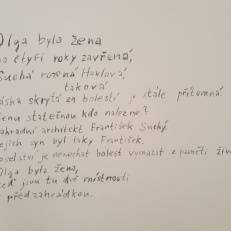 Olga byla žena
na čtyři roky zavřená,
Suchá rozená Havlová,
taková
láska skrytá za bolestí je stále přítomná
ženu statečnou kdo nalezne?
Zahradní architekt František Suchý
Jejich syn byl taky František.
Poselství je nenechat bolest vymazat z paměti živ
Olga byla žena,
teď jsou tu dvě místnosti
s předzahrádkou.